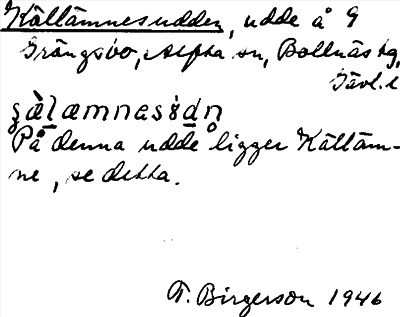 Källämnesudden, udde å 9
Grängsbo, Alfta sn, Bollnäs tg,
Gävl. l
På denna udde ligger Källäm-
ne, se detta.
T. Birgerson 1946